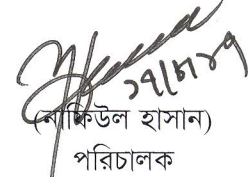 ১৭/৮/১৭
(নাফিউল হাসান)
পরিচালক